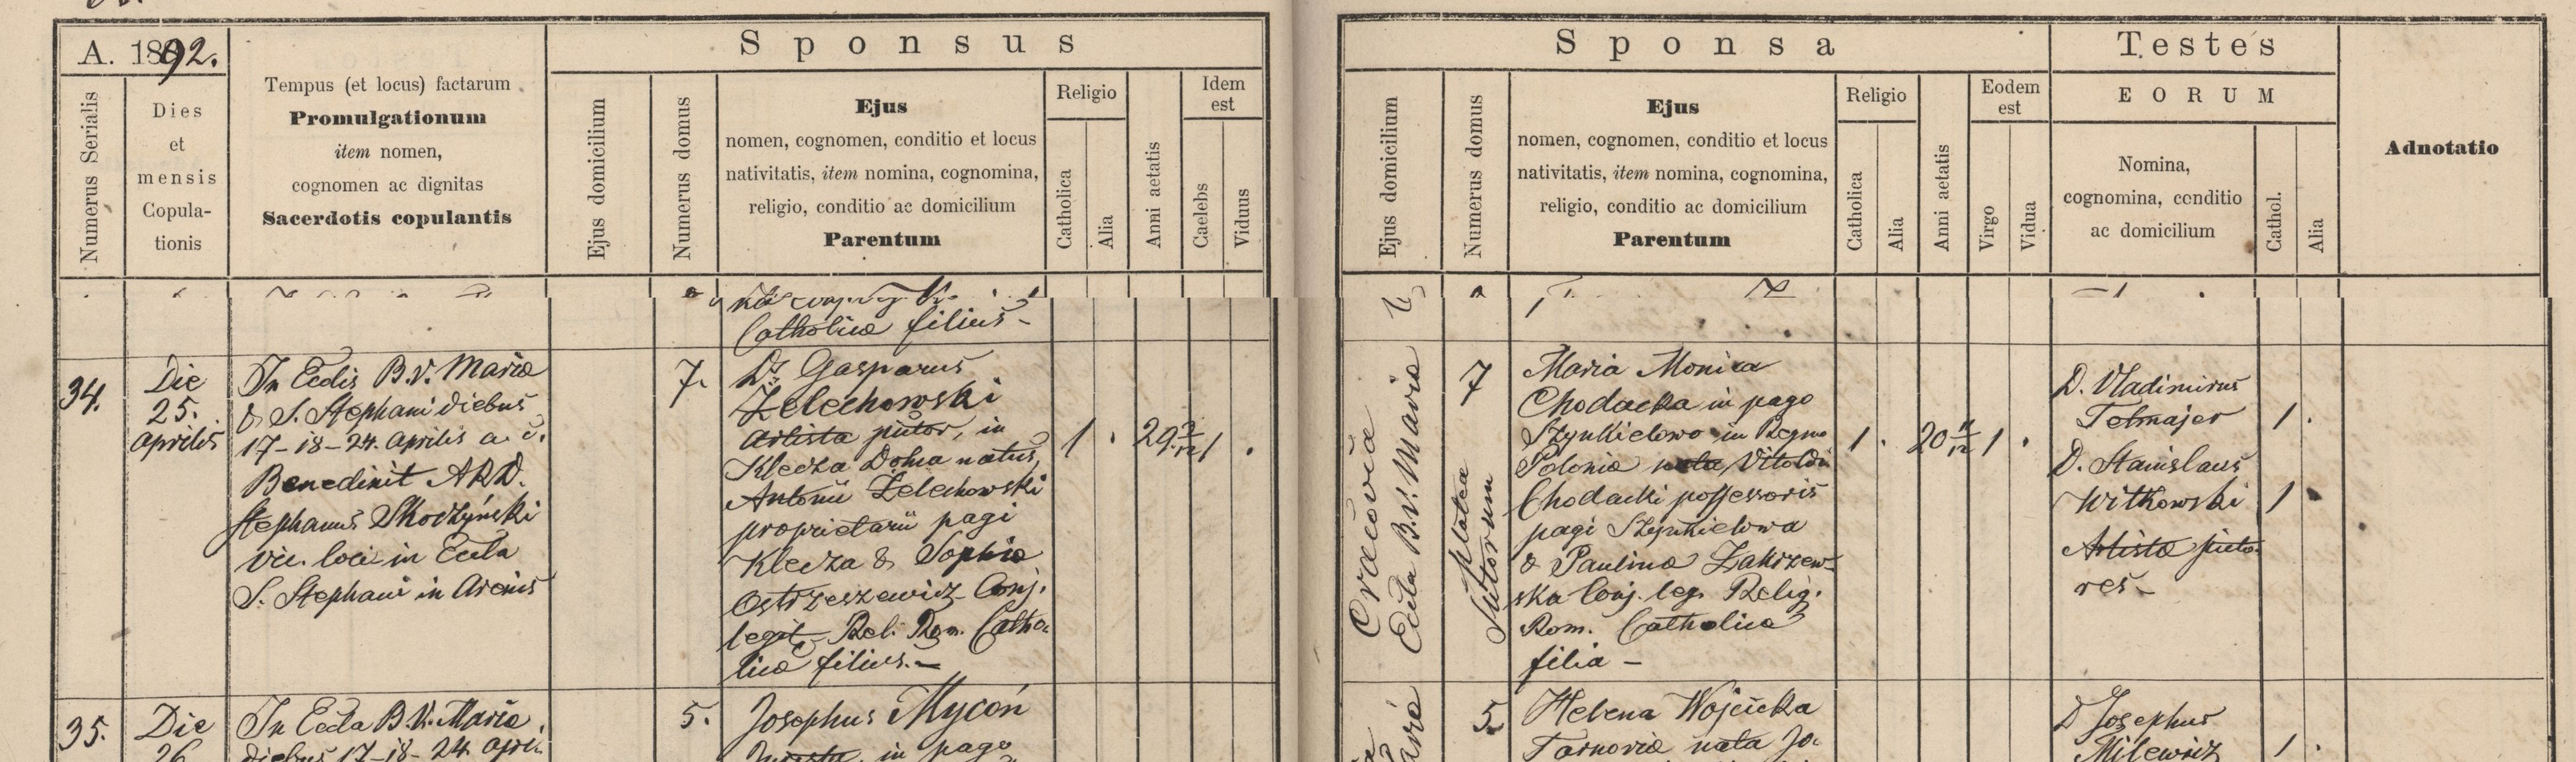 A. 1892.
Numerus Serialis
Dies
et
mensis
Copula-
tionis
Tempus (et locus) factarum
Promulgationum
item nomen,
cognomen ac dignitas
Sacerdotis copulantis
Sponsus
Ejus domicilium
Numerus domus
Ejus
nomen, cognomen, conditio et locus
nativitatis, item nomina, cognomina,
religio, conditio ac domicilium
Parentum
Religio
Catholica
Alia
Anni aetatis
Idem
est
Caelebs
Viduus
Sponsa
Ejus domicilium
Numerus domus
Ejus
nomen, cognomen, conditio et locus
nativitatis, item nomina, cognomina,
religio, conditio ac domicilium
Parentum
Religio
Catholica
Alia
Anni aetatis
Eodem
est
Virgo
Vidua
Testes
EORUM
Nomina,
cognomina, conditio
ac domicilium
Cathol.
Alia
Adnotatio
Catholicæ filius -
34.
Die
25.
Aprilis
In Eccliis B.V. Mariæ
& S. Stephani diebus
17-18-24. Aprilis a. c.
Benedixit ARD.
Stephanus Skoczyński
vic. loci in Eccla
S. Stephani in Arenis
7.
Ds Gasparus
Żelechowski
Artista pictor, in
Klecza Dolna natus,
Antonii Żelechowski
proprietarii pagi
Klecza & Sophiæ
Ostrzeszewicz Conj.
legit. Rel. Rom. Catho-
licæ filius.-
1 .
29 3/12
1 .
Cracoviæ
Eccla B.V. Mariæ
7
platea
Sutorum
Maria Monica
Chodacka in pago
Szynkielowo in Regno
Poloniæ nata, Vitoldi
Chodacki possessoris
pagi Szynkielowa
& Paulinæ Zakrzew-
ska Conj. leg. Relig.
Rom. Catholicæ
filia -
1 .
20 11/12
1 .
D. Vladimirus
Tetmajer
1 .
D. Stanislaus
Witkowski
1 .
Artistæ picto-
res -
35.
Die
26
In Eccla B.V. Mariæ
diebus 17-18-24 Apri-
5.
Josephus Mycoń
in pago
5.
Helena Wójcicka
Tarnoviæ nata Jo-
D Josephus
Milewicz
1 .